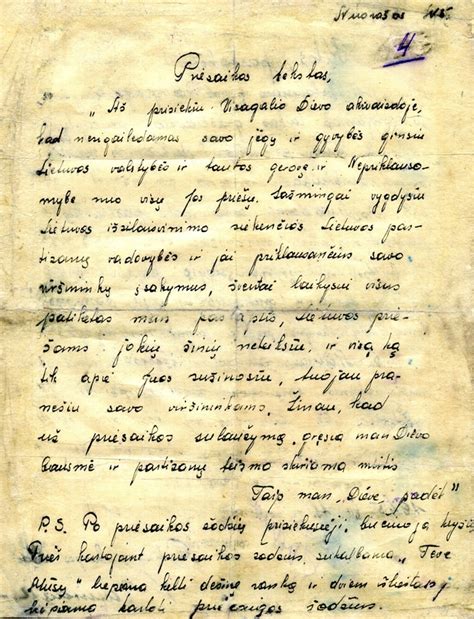 Nuorašas
4
Priesaikos tekstas.
„Aš prisiekiu Visagalio Dievo akivaizdoje,
kad nesigailėdamas savo jėgų ir gyvybės ginsiu
Lietuvos valstybės ir tautos gerovę ir Nepriklauso-
mybę nuo visų Jos priešų. Sąžiningai vygdysiu
Lietuvos išsilaisvinimo siekenčios Lietuvos par-
tizanų vadovybės ir jai priklausančių savo
viršininkų įsakymus, šventai laikysiu visas
patikėtas man paslaptis, Lietuvos prie-
šams jokių žinių neteiksiu, ir visą ką
tik apie juos sužinosiu, tuojau pra-
nešiu savo viršininkams. Žinau, kad
už priesaikos sulaužymą gresia man Dievo
bausmė ir partizanų teismo skiriama mirtis
Taip man, Dieve, padėk"
P.S. Po priesaikos žodžių prisiekusieji, bučiuoja kryžių
Prieš kartojant priesaikos žodžius, sukalbama „Tėve
Mūsų" liepiama kelti dešinę ranką ir dviem
liepiama kartoti priesaigos žodžius.